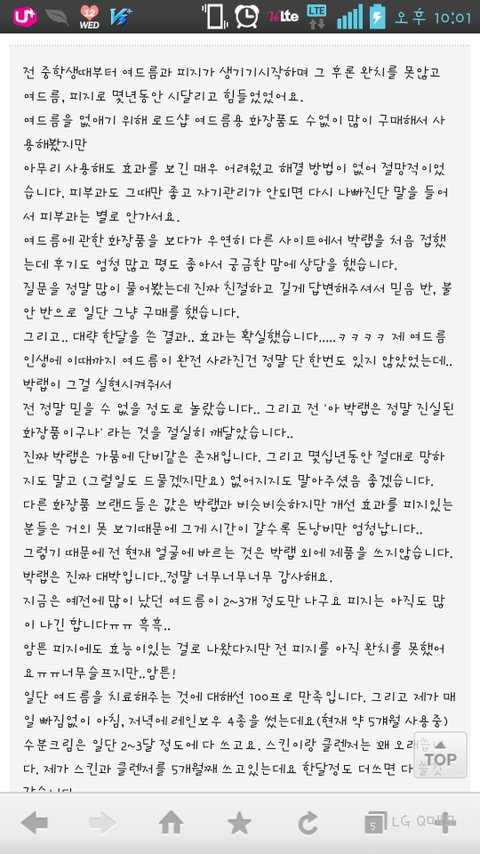 12
WED
LTE
LTE
오후 10:01
전 중학생때부터 여드름과 피지가 생기기시작하며 그 후론 완치를 못않고
여드름, 피지로 몇년동안 시달리고 힘들었었어요.
여드름을 없애기 위해 로드샵 여드름용 화장품도 수없이 많이 구매해서 사
용해봤지만
아무리 사용해도 효과를 보긴 매우 어려웠고 해결 방법이 없어 절망적이었
습니다. 피부과도 그때만 좋고 자기관리가 안되면 다시 나빠진단 말을 들어
서 피부과는 별로 안가서요.
여드름에 관한 화장품을 보다가 우연히 다른 사이트에서 박랩을 처음 접했
는데 후기도 엄청 많고 평도 좋아서 궁금한 맘에 상담을 했습니다.
질문을 정말 많이 물어봤는데 진짜 친절하고 길게 답변해주셔서 믿음 반, 불
안 반으로 일단 그냥 구매를 했습니다.
그리고.. 대략 한달을 쓴 결과.. 효과는 확실했습니다.....ㅋㅋㅋㅋ 제 여드름
인생에 이때까지 여드름이 완전 사라진건 정말 단 한번도 있지 않았었는데..
박랩이 그걸 실현시켜줘서
전 정말 믿을 수 없을 정도로 놀랐습니다.. 그리고 전 '아 박랩은 정말 진실된
화장품이구나' 라는 것을 절실히 깨달았습니다..
진짜 박랩은 가뭄에 단비같은 존재입니다. 그리고 몇십년동안 절대로 망하
지도 말고 (그럴일도 드물겠지만요) 없어지지도 말아주셨음 좋겠습니다.
다른 화장품 브랜드들은 값은 박랩과 비슷비슷하지만 개선 효과를 피지있는
분들은 거의 못 보기때문에 그게 시간이 갈수록 돈낭비만 엄청납니다..
그렇기 때문에 전 현재 얼굴에 바르는 것은 박랩 외에 제품을 쓰지않습니다.
박랩은 진짜 대박입니다..정말 너무너무너무 감사해요.
지금은 예전에 많이 났던 여드름이 2~3개 정도만 나구요 피지는 아직도 많
이 나긴 합니다ㅠㅠ 흑흑..
암튼 피지에도 효능이있는 걸로 나왔다지만 전 피지를 아직 완치를 못했어
요ㅠㅠ너무슬프지만..암튼!
일단 여드름을 치료해주는 것에 대해선 100프로 만족입니다. 그리고 제가 매
일 빠짐없이 아침, 저녁에 레인보우 4종을 썼는데요(현재 약 5개월 사용중)
수분크림은 일단 2~3달 정도에 다 쓰고요. 스킨이랑 클렌저는 꽤 오래씁
다. 제가 스킨과 클렌저를 5개월째 쓰고있는데요 한달정도 더쓰면 다
TOP
5
LG Q메모